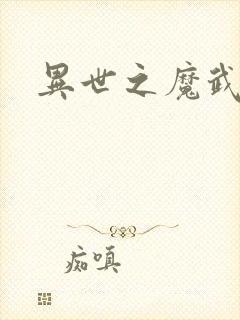 異世之魔武
痴嗔